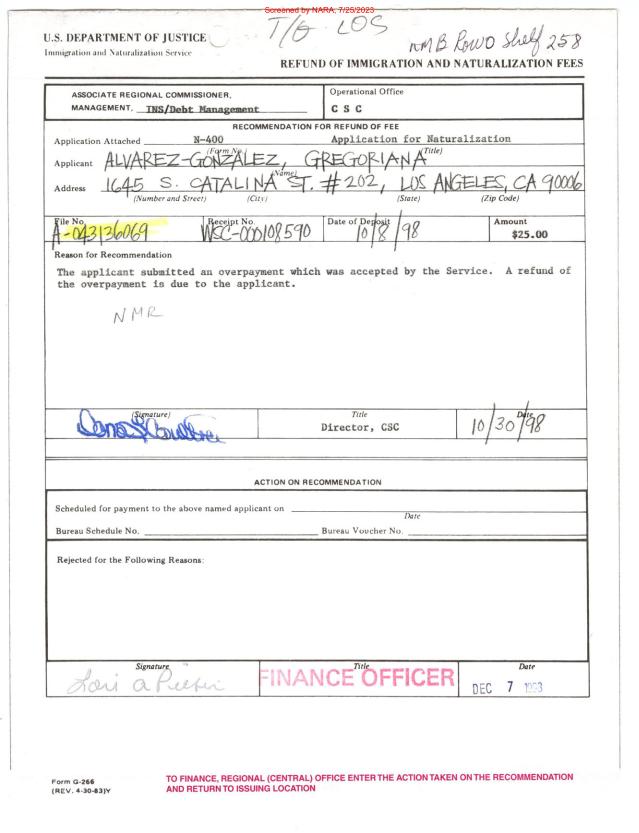 Screened by NARA, 7/25/2023
T/G LOS
NMB Rowo Shelf 258
U.S. DEPARTMENT OF JUSTICE
Immigration and Naturalization Service
REFUND OF IMMIGRATION AND NATURALIZATION FEES
ASSOCIATE REGIONAL COMMISSIONER,
MANAGEMENT, INS/Debt Management
Operational Office
C S C
RECOMMENDATION FOR REFUND OF FEE
Application Attached N-400 Application for Naturalization
(Form No.) (Title)
Applicant ALVAREZ-GONZALEZ, GREGORIANA
(Name)
Address 1645 S. CATALINA ST. #202, LOS ANGELES, CA 90006
(Number and Street) (City) (State) (Zip Code)
File No. Receipt No. Date of Deposit Amount
A-043136069 WSC-000108590 10/8/98 $25.00
Reason for Recommendation
The applicant submitted an overpayment which was accepted by the Service. A refund of
the overpayment is due to the applicant.
NMR
(Signature) Title Date
Director, CSC 10/30/98
ACTION ON RECOMMENDATION
Scheduled for payment to the above named applicant on
Date
Bureau Schedule No. Bureau Voucher No.
Rejected for the Following Reasons:
Signature Title Date
Lori a FINANCE OFFICER DEC 7
Form G-266
(REV. 4-30-83)Y
TO FINANCE, REGIONAL (CENTRAL) OFFICE ENTER THE ACTION TAKEN ON THE RECOMMENDATION
AND RETURN TO ISSUING LOCATION